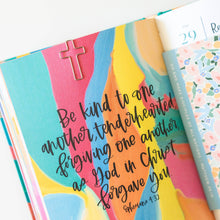 Be kind to one
another, tenderhearted,
forgiving one another,
as God in Christ
forgave you
Ephesians 4:32
29